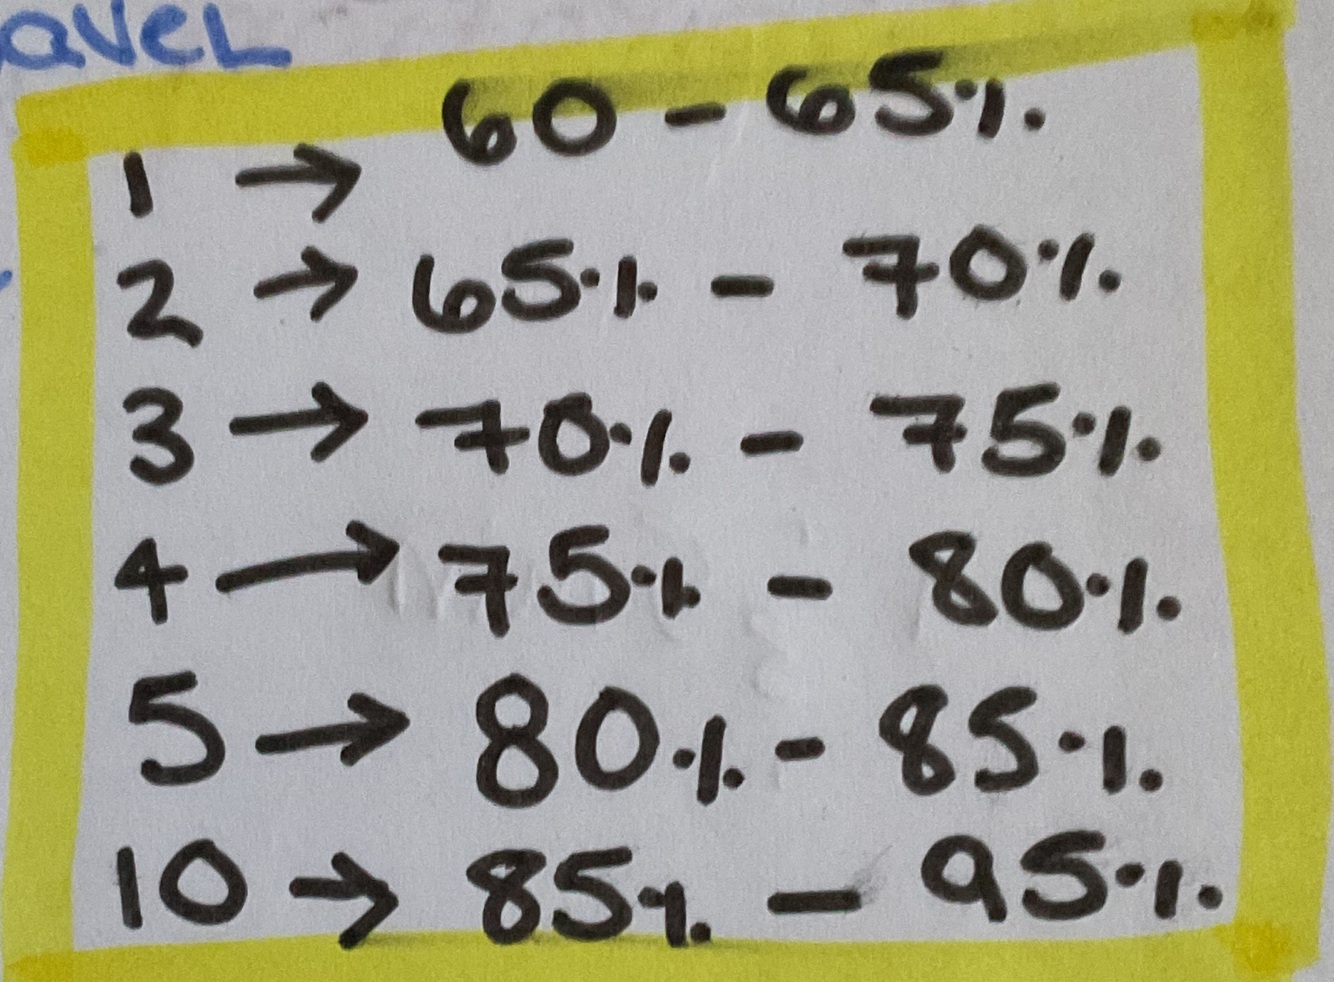 1 → 60 - 65%
2 → 65% - 70%
3 → 70% - 75%
4 → 75% - 80%
5 → 80% - 85%
10 → 85% - 95%